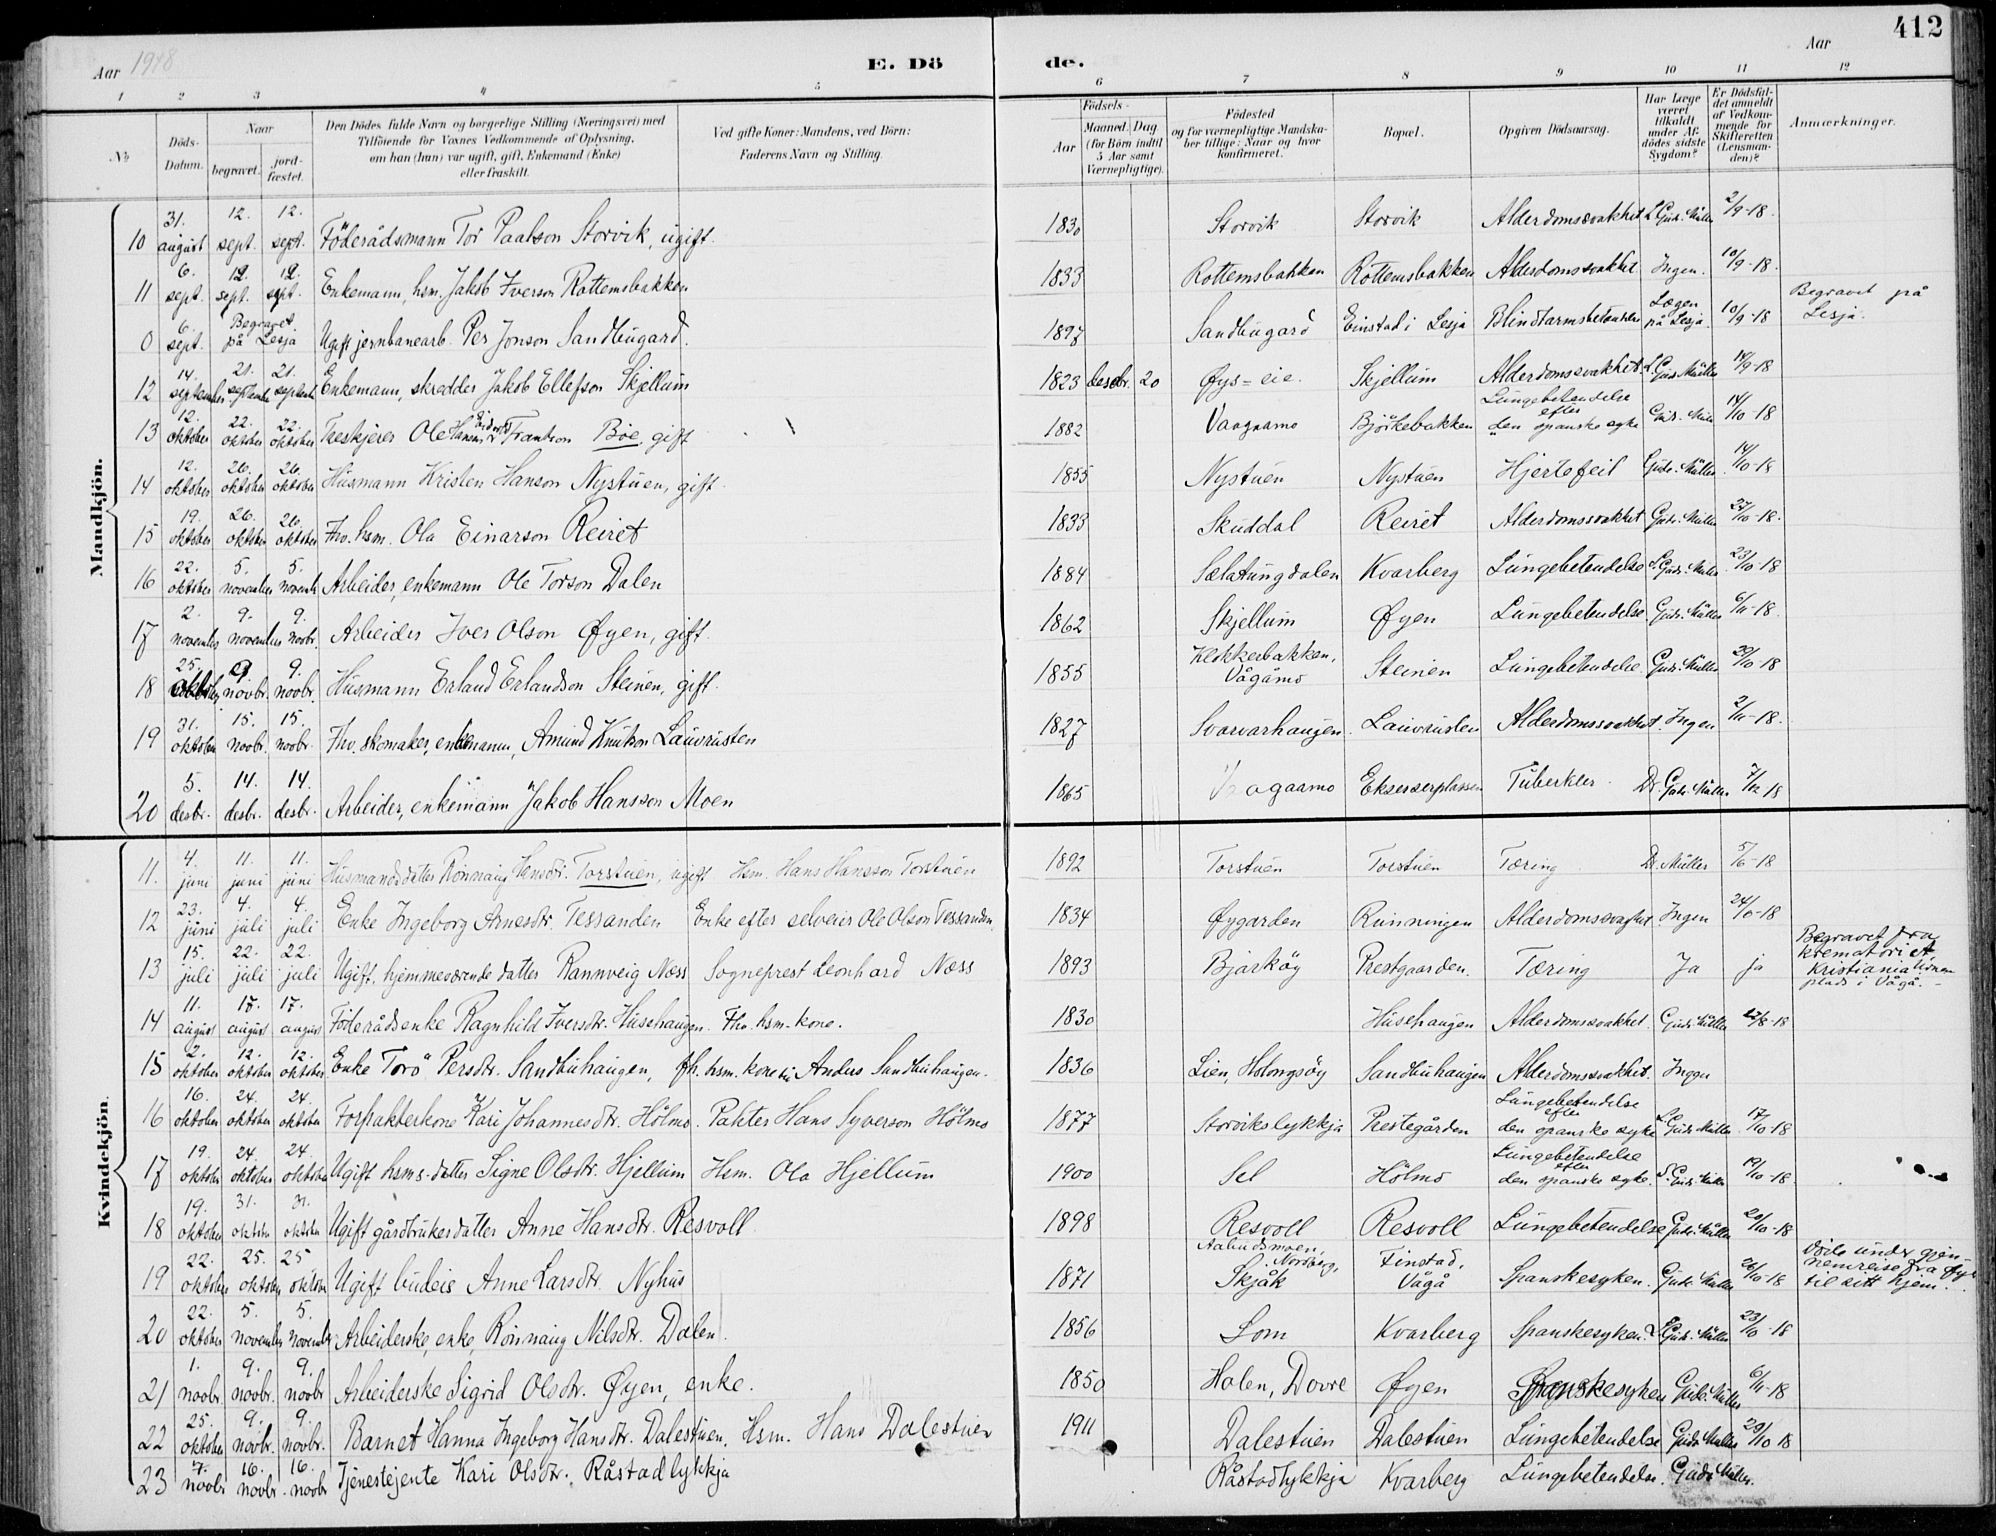 412
Aar 1918
E. Dö de.
Aar
1 2 3 4 5 6 7 8 9 10 11 12
№
Döds-Datum.
Naar begravet. jordfæstet.
Den Dödes fulde Navn og borgerlige Stilling (Næringsvei) med Tilföiende for Voxnes Vedkommende af Oplysning, om han (hun) var ugift, gift, Enkemand (Enke) eller fraskilt.
Ved gifte Koner: Mandens, ved Börn: Faderens Navn og Stilling.
Födsels-
Aar
Maaned. Dag (for Börn indtil 5 Aar samt Værnepligtige).
Födested og for værnepligtige Mandskaber tillige: Naar og hvor konfirmeret.
Bopæl.
Opgiven Dödsaarsag.
Har Læge været tilkaldt under Afdödes sidste Sygdom?
Er Dödsfaldet anmeldt af Vedkommende for Skifteretten (Lensmanden)?
Anmærkninger.
Mandkjön.
10 31. august 12. sept. 12. sept. Föderådsmann Tor Paalson Storvik, ugift. 1830 Storvik Storvik Alderdomssvakhet L. Gudr. Müller 2/9-18.
11 6. sept. 12. sept. 12. sept. Enkemann, hsm. Jakob Iverson Rottemsbakken 1833 Rottemsbakken Rottemsbakken Alderdomssvakhet Ingen. 10/9-18.
0 6. sept. Begravet på Lesja Ugift jernbanearb. Per Jonson Sandbugard. 1897 Sandbugard Einstad i Lesja Blindtarmsbetændelse Lægen på Lesja. 10/9-18 Begravet på Lesja.
12 14. september 21. september 21. september Enkemann, skredder Jakob Ellefson Skjellum 1823 desbr. 20 Øys=eie. Skjellum Alderdomssvakhet. L. Gudr. Müller 14/9-18
13 12. oktober 22. oktober 22. oktober Treskjerer Ole Hansen Frantson Böe, gift 1882 Vaagaamo Björkebakken Lungebetendelse efter den spanske syke Gudr. Müller 14/10-18
14 12. oktober 26. oktober 26. oktober Husmann Kristen Hanson Nystuen, gift. 1855 Nystuen Nystuen Hjertefeil Gudr. Müller. 14/10-18
15 19. oktober 26. oktober 26. oktober Fhv. hsm. Ola Einarson Reiret 1833 Skuddal Reiret Alderdomssvakhet Gudr. Müller 27/10-18.
16 22. oktober 5. november 5. novemb. Arbeider, enkemann Ole Torson Dalen 1884 Sælatungdalen Kvarberg Lungebetendelse L. Gudr. Müller. 23/10-18
17 2. november 9. november 9. novbr. Arbeider Iver Olson Øyen, gift. 1862 Skjellum Øyen Lungebetendelse. Gudr. Müller 6/11-18.
18 25. oktober 9. novbr. 9. novbr. Husmann Erland Erlandson Steinen, gift. 1855 Klokkerbakken, Vågåmo Steinen Lungebetendelse Gudr. Müller 29/10-18
19 31. oktober 15. novbr. 15. novbr. Fhv. skomaker, enkemann, Amund Knutson Lauvrusten 1827 Svarvarhaugen. Lauvrusten Alderdomssvakhet. Ingen 2/11-18.
20 5. desbr. 14. desbr. 14. desbr. Arbeider, enkemann Jakob Hansson Moen 1865 Vaagaamo Ekserserplassen Tuberkler. Dr. Gudr. Müller 7/12 18
Kvindekjön.
11. 4. juni 11. juni 11. juni Husmandsdatter Rönnaug Hansdr. Torstuen, ugift Hsm. Hans Hansson Torstuen 1892 Torstuen Torstuen Tæring Dr. Müller 5/6-18
12 23. juni 4. juli 4. juli Enke Ingeborg Arnesdr. Tessanden Enke efter selveier Ole Olson Tessanden 1834 Øygarden Runningen Alderdomssvakhet. Ingen 24/6-18
13 15. juli 22. juli 22. juli Ugift, hjemmeværende datter Rannveig Næss Sogneprest Leonhard Næss 1893 Bjarköy Prestgaarden. Tæring Ja ja Begravet fra krematoriet, Kristiania urneplads i Vågå.
14 11. august 17. august 17. august Föderådsenke Ragnhild Iversdr. Husehaugen. Fhv. hsm. kone. 1830 Husehaugen Alderdomssvakhet. Gudr. Müller 12/8-18
15 2. oktober 12. oktober 12. oktober Enke Torö Persdr. Sandbuhaugen, fh. hsm. kone til Anders Sandbuhaugen. 1836 Lien, Holongsöy Sandbuhaugen Alderdomssvakhet. Ingen
16 16. oktober 24. oktober 24. oktober Forpakterkone Kari Johannesdr. Hölmo. Pakter Hans Syverson Hölmo 1877 Storvikslykkja Prestegården Lungebetendelse efter den spanske syke L. Gudr. Müller 17/10-18
17 19. oktober 24. oktober 24. oktober Ugift hsms.-datter Signe Olsdr. Hjellum Hsm. Ola Hjellum 1900 Sel Hölmo Lungebetendelse efter den spanske syke. L. Gudr. Müller 19/10-18.
18 19. oktober 31. oktober 31. oktober Ugift gårdbrukerdatter Anne Hansdr. Resvoll 1898 Resvoll Resvoll Lungebetendelse Gudr. Müller 20/10-18
19 22. oktober 25. oktober 25 oktober Ugift budeie Anne Larsdtr. Nyhus 1871 Aaludsmoen, Nordberg, Skjåk Finstad, Vågå Spanskesyken. Gudr. Müller 26/10-18 Döde under gjennemreise fra Øye til sitt hjem.
20 22. oktober 5. november 5. november Arbeiderske, enke, Rönnaug Nilsdr. Dalen. 1856 Lom Kvarberg Spanskesyken. L. Gudr. Müller 23/10-18
21 1. novbr. 9. novbr. 9. novbr Arbeiderske Sigrid Olsdr. Øyen, enke. 1850 Holen, Dovre Øyen Spanskesyken Gudr. Müller 6/11-18
22 25. oktober 9. novbr. 9. novbr. Barnet Hanna Ingeborg Hansdr. Dalestuen. Hsm. Hans Dalestuen 1911 Dalestuen Dalestuen Lungebetendelse Gudr. Müller 29/10 18
23 7. novbr 16. novbr. 16. novbr Tjenestejente Kari Olsdr. Råstadlykkja Råstadlykkja Kvarberg Lungebetendelse. Gudr. Müller.